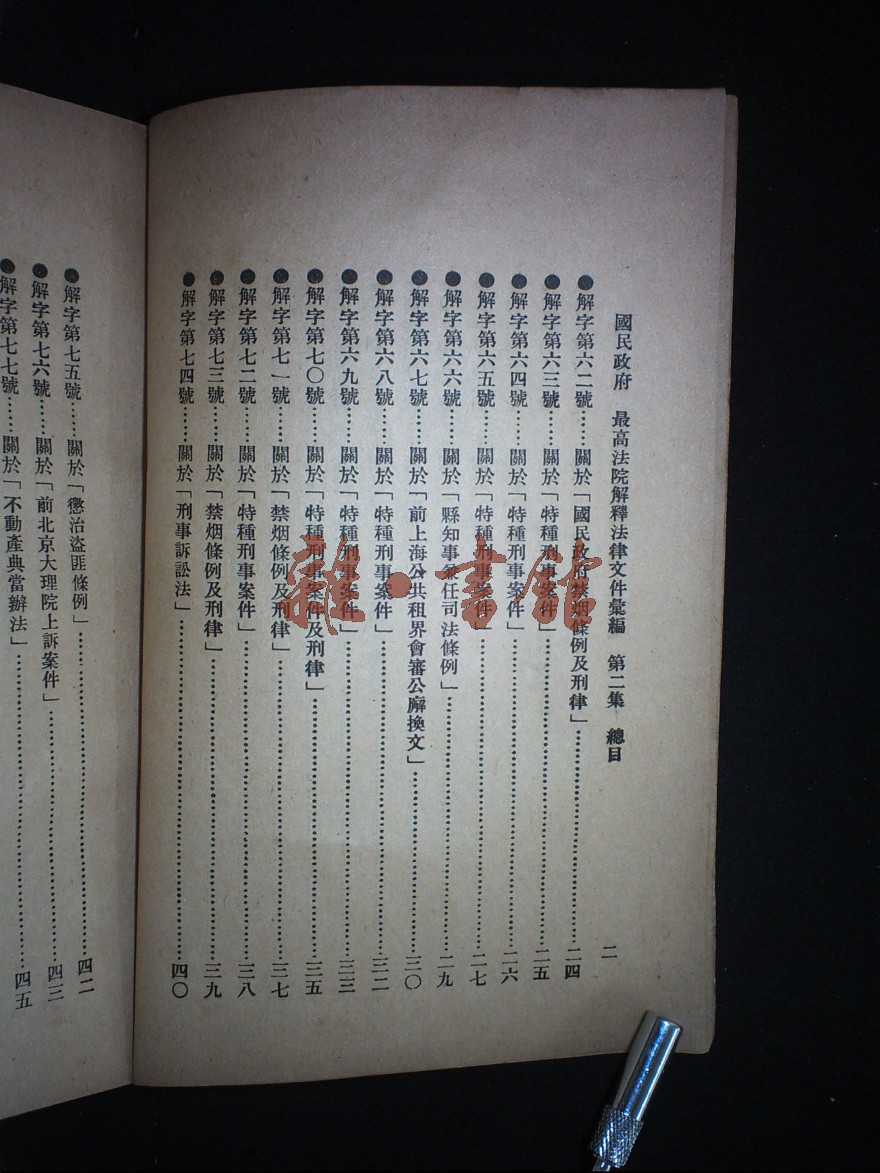 國民政府 最高法院解釋法律文件彙編 第二集 總目
二
●解字第六二號……關於「國民政府禁烟條例及刑律」……二四
●解字第六三號……關於「特種刑事案件」……二五
●解字第六四號……關於「特種刑事案件」……二六
●解字第六五號……關於「特種刑事案件」……二七
●解字第六六號……關於「縣知事兼任司法條例」……二九
●解字第六七號……關於「前上海公共租界會審公廨換文」……三〇
●解字第六八號……關於「特種刑事案件」……三二
●解字第六九號……關於「特種刑事案件」……三三
●解字第七〇號……關於「特種刑事案件及刑律」……三五
●解字第七一號……關於「禁烟條例及刑律」……三七
●解字第七二號……關於「特種刑事案件」……三八
●解字第七三號……關於「禁烟條例及刑律」……三九
●解字第七四號……關於「刑事訴訟法」……四〇
●解字第七五號……關於「懲治盜匪條例」……四二
●解字第七六號……關於「前北京大理院上訴案件」……四三
●解字第七七號……關於「不動產典當辦法」……四五
雜·書館